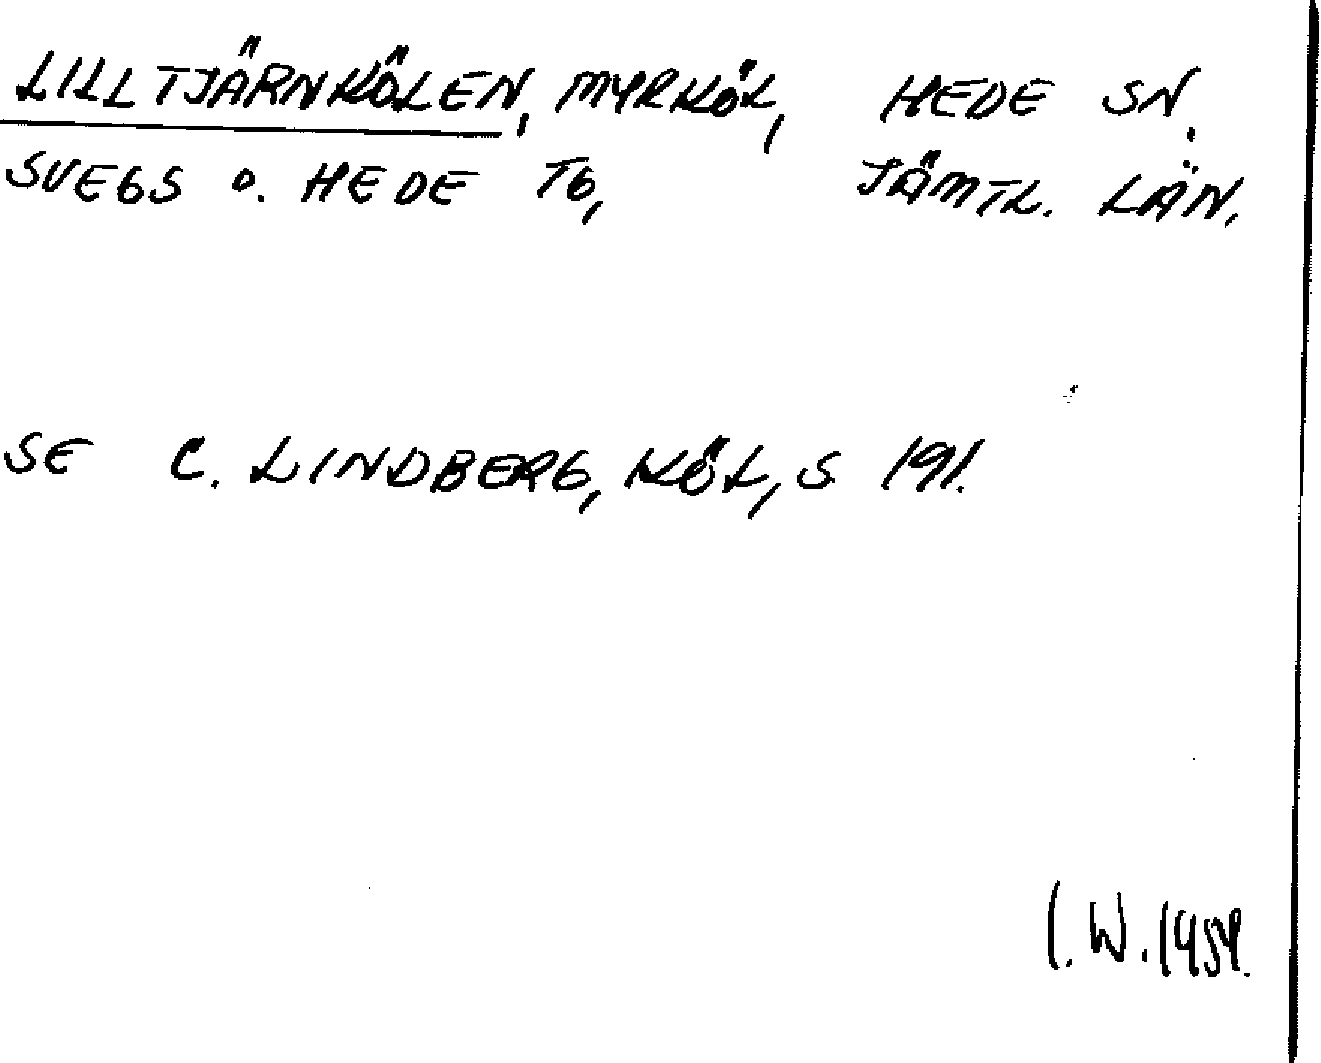 LILLTJÄRNKÖLEN, MYRKÖL, HEDE SN,
SVEGS O. HEDE TG, JÄMTL. LÄN.
SE C. LINDBERG, KÖL, S 191.
I. W. 1954.